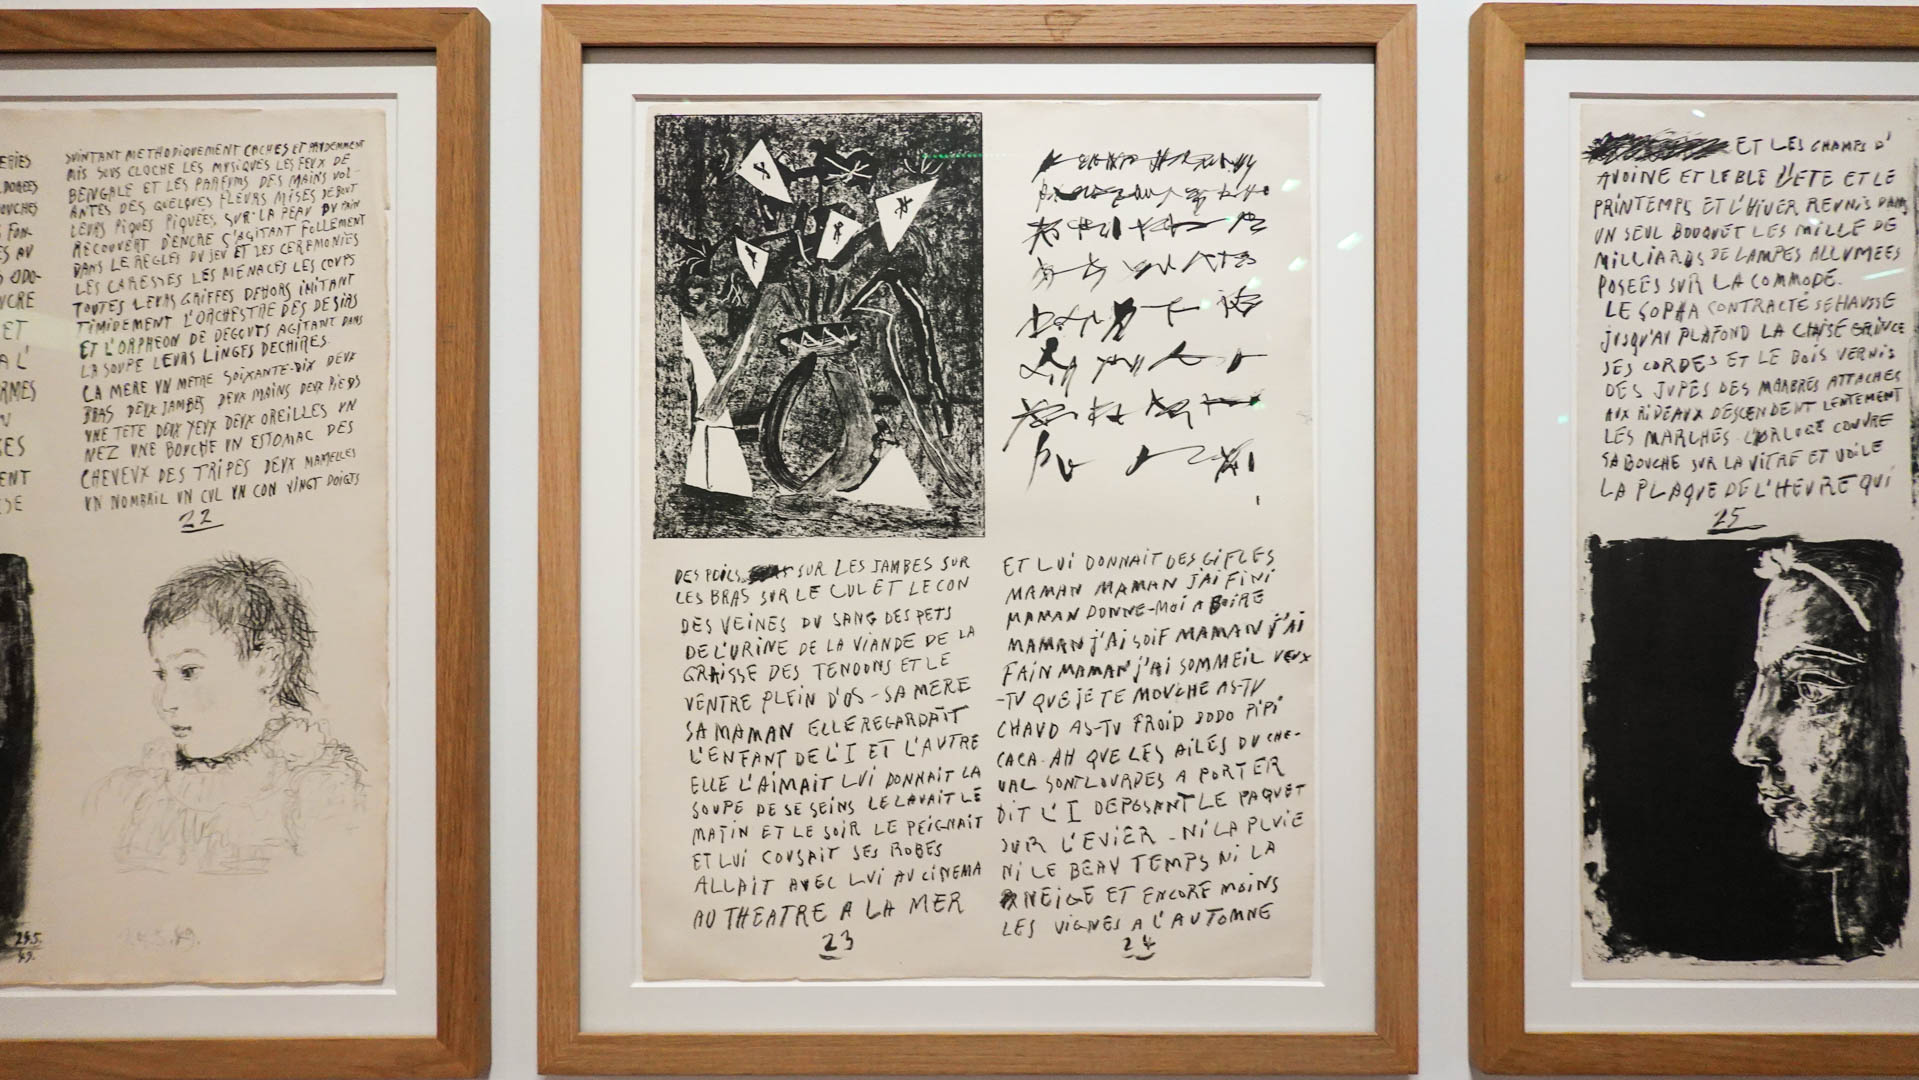 ERIES
DOREES
OUCHES
FON-
ES AU
ODO-
UCRE
ET
A L'
RMES
SES
ENT
SE
SUINTANT METHODIQUEMENT CACHES ET
MIS SOUS CLOCHE LES MUSIQUES LES FEUX DE
BENGALE ET LES PARFUMS DES MAINS VOL-
ANTES DES QUELQUES FLEURS MISES DEBOUT
LEURS PIQUES PIQUEES, SUR LA PEAU DU PAIN
RECOUVERT D'ENCRE S'AGITANT FOLLEMENT
DANS LE REGLES DU JEU ET LES CEREMONIES
LES CARESSES LES MENACES LES COUPS
TOUTES LEURS GRIFFES DEHORS IMITANT
TIMIDEMENT L'ORCHESTRE DES DESIRS
ET L'ORPHEON DE DEGOUTS AGITANT DANS
LA SOUPE LEURS LINGES DECHIRES
LA MERE UN METRE SOIXANTE-DIX DEUX
BRAS DEUX JAMBES DEUX MAINS DEUX PIEDS
UNE TETE DEUX YEUX DEUX OREILLES UN
NEZ UNE BOUCHE UN ESTOMAC DES
CHEVEUX DES TRIPES DEUX MAMELLES
UN NOMBRIL UN CUL UN CON VINGT DOIGTS
22
24.5.
49.
24.5.49.
DES POILS SUR LES JAMBES SUR
LES BRAS SUR LE CUL ET LE CON
DES VEINES DU SANG DES PETS
DE L'URINE DE LA VIANDE DE LA
GRAISSE DES TENDONS ET LE
VENTRE PLEIN D'OS - SA MERE
SA MAMAN ELLE REGARDAIT
L'ENFANT DE L'I ET L'AUTRE
ELLE L'AIMAIT LUI DONNAIT LA
SOUPE DE SE SEINS LE LAVAIT LE
MATIN ET LE SOIR LE PEIGNAIT
ET LUI COUSAIT SES ROBES
ALLAIT AVEC LUI AU CINEMA
AU THEATRE A LA MER
23
ET LUI DONNAIT DES GIFLES
MAMAN MAMAN J'AI FINI
MAMAN DONNE-MOI A BOIRE
MAMAN J'AI SOIF MAMAN J'AI
FAIN MAMAN J'AI SOMMEIL VEUX
-TU QUE JE TE MOUCHE AS-TU
CHAUD AS-TU FROID DODO PIPI
CACA. AH QUE LES AILES DU CHE-
VAL SONT LOURDES A PORTER
DIT L'I DEPOSANT LE PAQUET
SUR L'EVIER - NI LA PLUIE
NI LE BEAU TEMPS NI LA
NEIGE ET ENCORE MOINS
LES VIGNES A L'AUTOMNE
24
ET LES CHAMPS D'
AVOINE ET LE BLE L'ETE ET LE
PRINTEMPS ET L'HIVER REUNIS DANS
UN SEUL BOUQUET LES MILLE DE
MILLIARDS DE LAMPES ALLUMEES
POSEES SUR LA COMMODE.
LE SOPHA CONTRACTÉ SE HAUSSE
JUSQU'AU PLAFOND LA CHAISE GRINCE
SES CORDES ET LE BOIS VERNIS
DES JUPES DES MARBRES ATTACHES
AUX RIDEAUX DESCENDENT LENTEMENT
LES MARCHES L'ORLOGE COUVRE
SA BOUCHE SUR LA VITRE ET VOILE
LA PLAQUE DE L'HEURE QUI
25